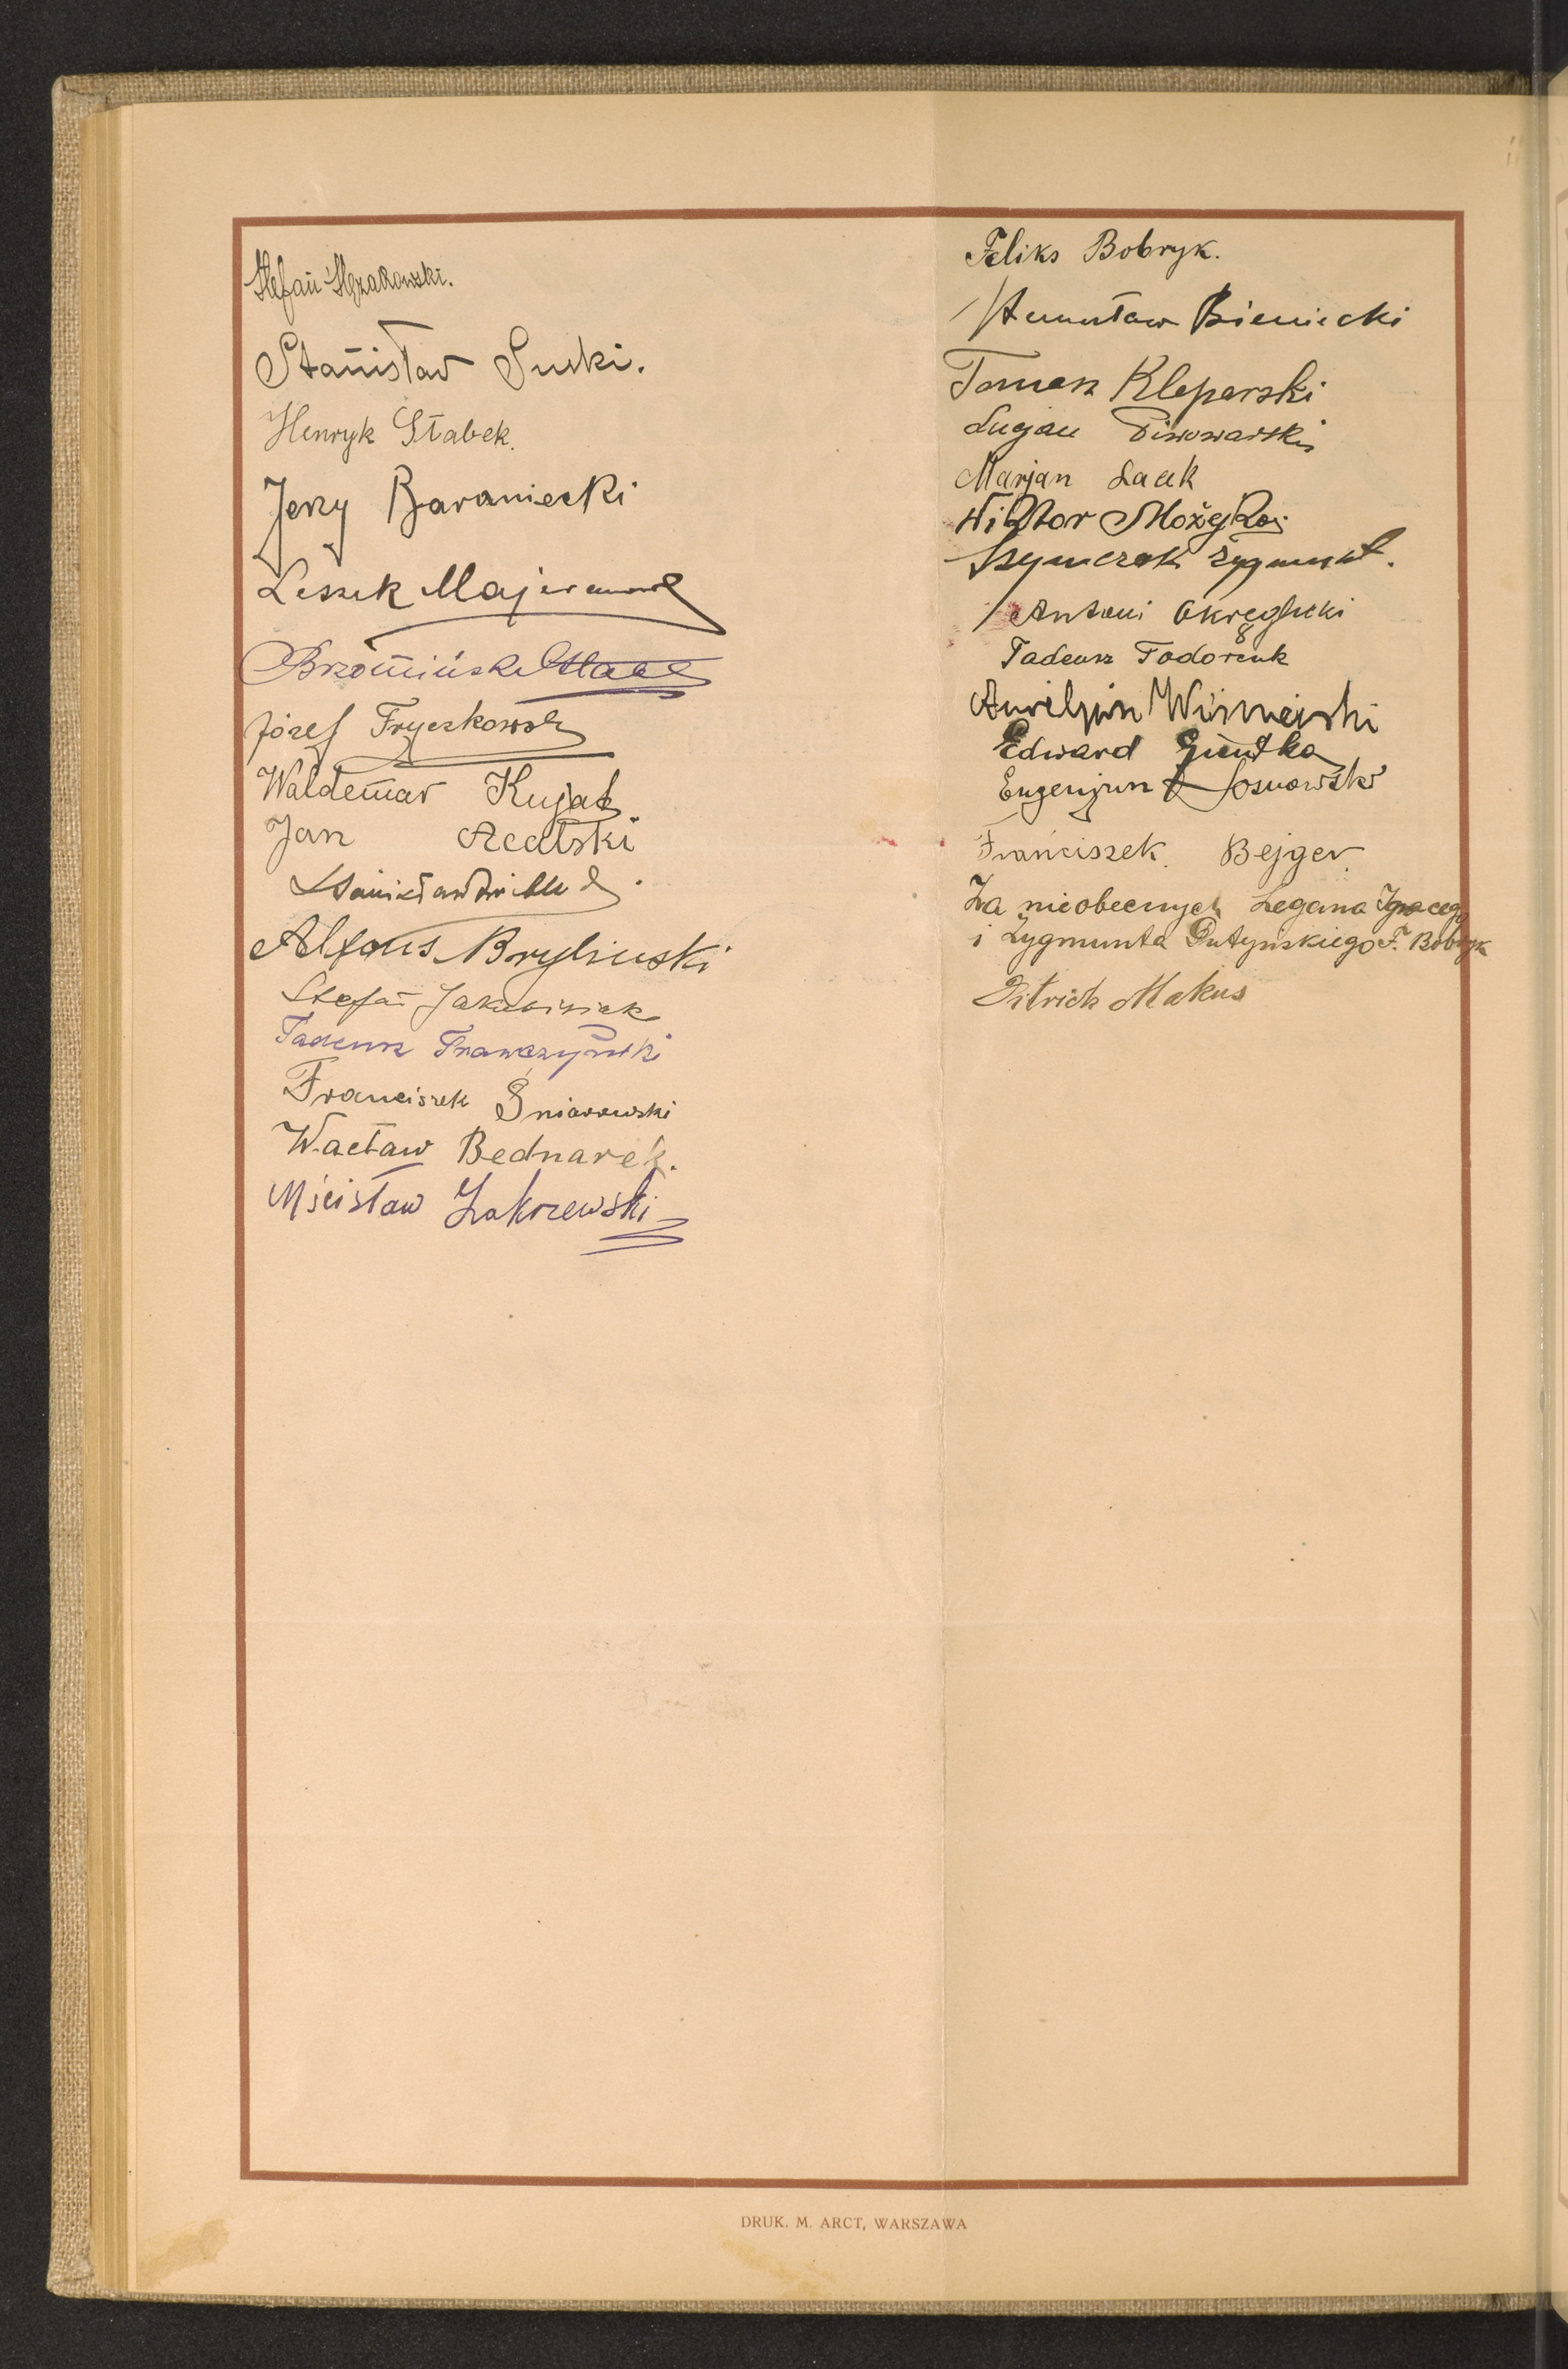 Stefan
Stanisław Suski.
Henryk Stabek.
Jerzy Baraniecki
Leszek
Józef Fryczkowski
Waldemar Kujat
Jan Acalski
Stanisław
Alfons Brylinski
Stefan Jakubisiak
Tadeusz Frawczyński
Franciszek Śniarowski
Wacław Bednarek.
Mścisław Zakrzewski
Feliks Bobryk.
Stanisław Bieniecki
Tomasz Kleparski
Lucjan Piwowarski
Marjan Lack
Wiktor
Szymczak Zygmunt.
Antoni Okręglicki
Tadeusz Fodorczuk
Aureljusz Wiśniewski
Edward Gientka
Eugenjusz Sosnowski
Franciszek. Bejger
Za nieobecnych Legana Ignacego
i Zygmunta Dutyńskiego F. Bobryk
Ditrich Makus
DRUK. M. ARCT, WARSZAWA